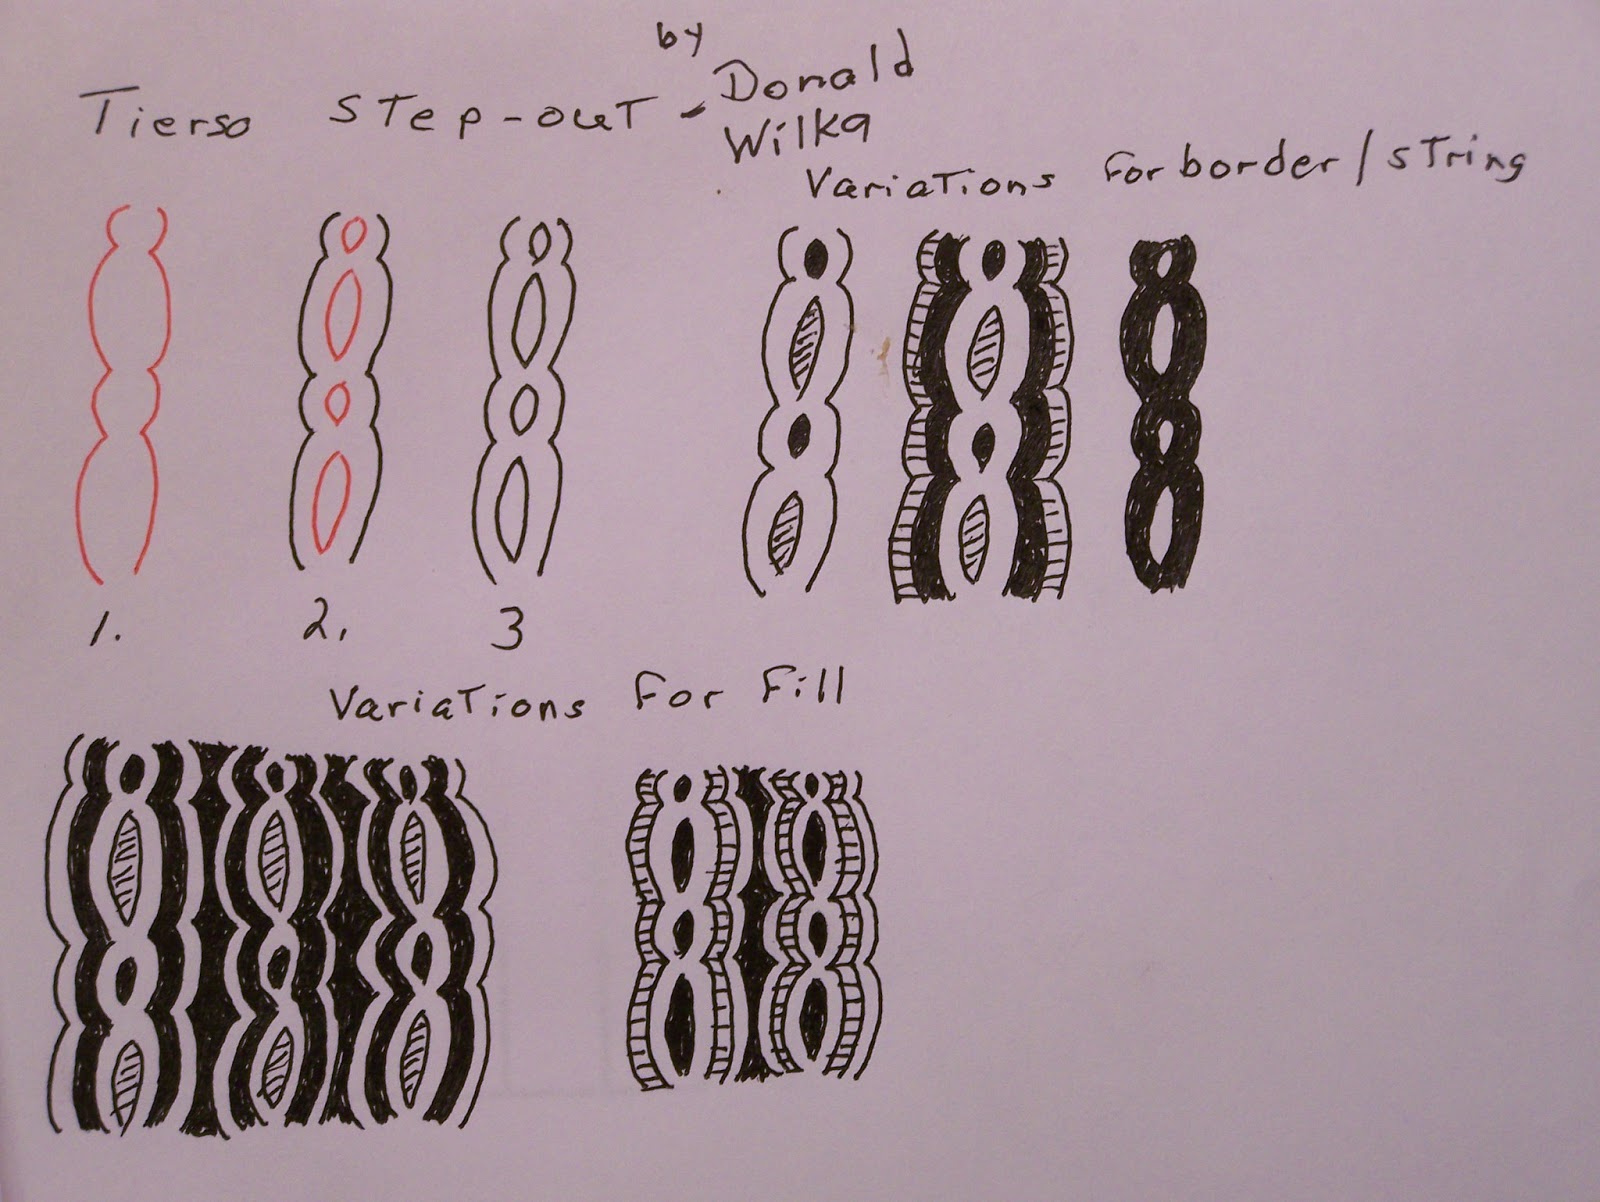 Tierso Step-out - by Donald
Wilka
Variations for border/string
1. 2. 3
Variations for fill